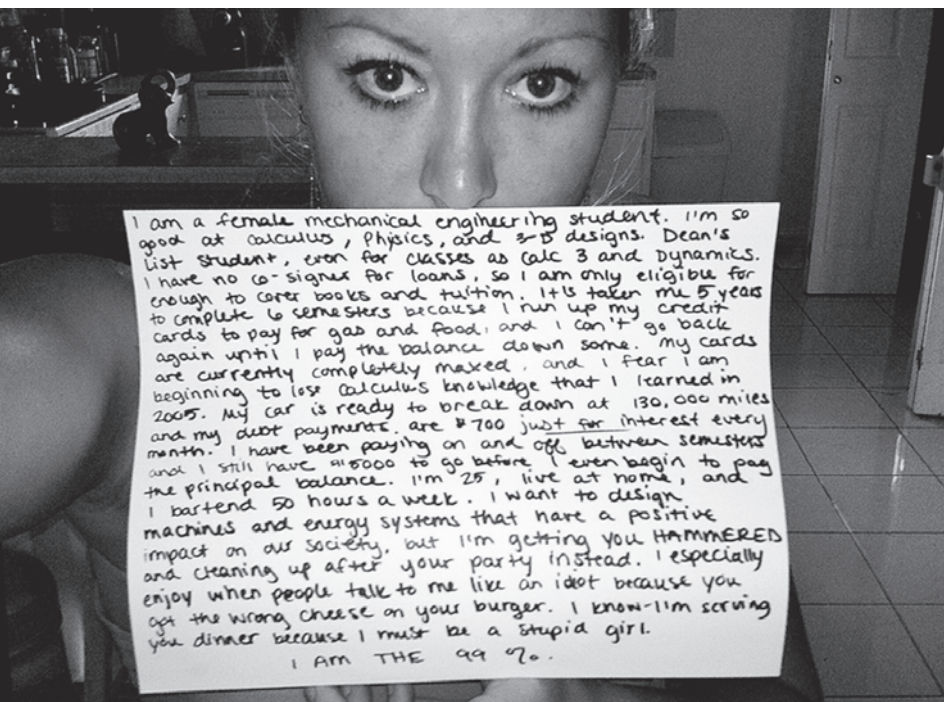 I am a female mechanical engineering student. I'm so
good at calculus, Physics, and 3-D designs. Dean's
List student, even for classes as Calc 3 and Dynamics.
I have no co-signer for loans, so I am only eligible for
enough to cover books and tuition. It is taken me 5 years
to complete 6 semesters because I run up my credit
cards to pay for gas and food, and I can't go back
again until I pay the balance down some. My cards
are currently completely maxed, and I fear I am
beginning to lose Calculus knowledge that I learned in
2005. My car is ready to break down at 130,000 miles
and my debt payments are $700 just for interest every
month. I have been paying on and off between semesters
and I still have to go before I even begin to pay
the principal balance. I'm 25, live at home, and
I bartend 50 hours a week. I want to design
machines and energy systems that have a positive
impact on our society, but I'm getting you HAMMERED
and cleaning up after your party instead. I especially
enjoy when people talk to me like an idiot because you
got the wrong cheese on your burger. I know-I'm serving
you dinner because I must be a stupid girl.
I AM THE 99 %.